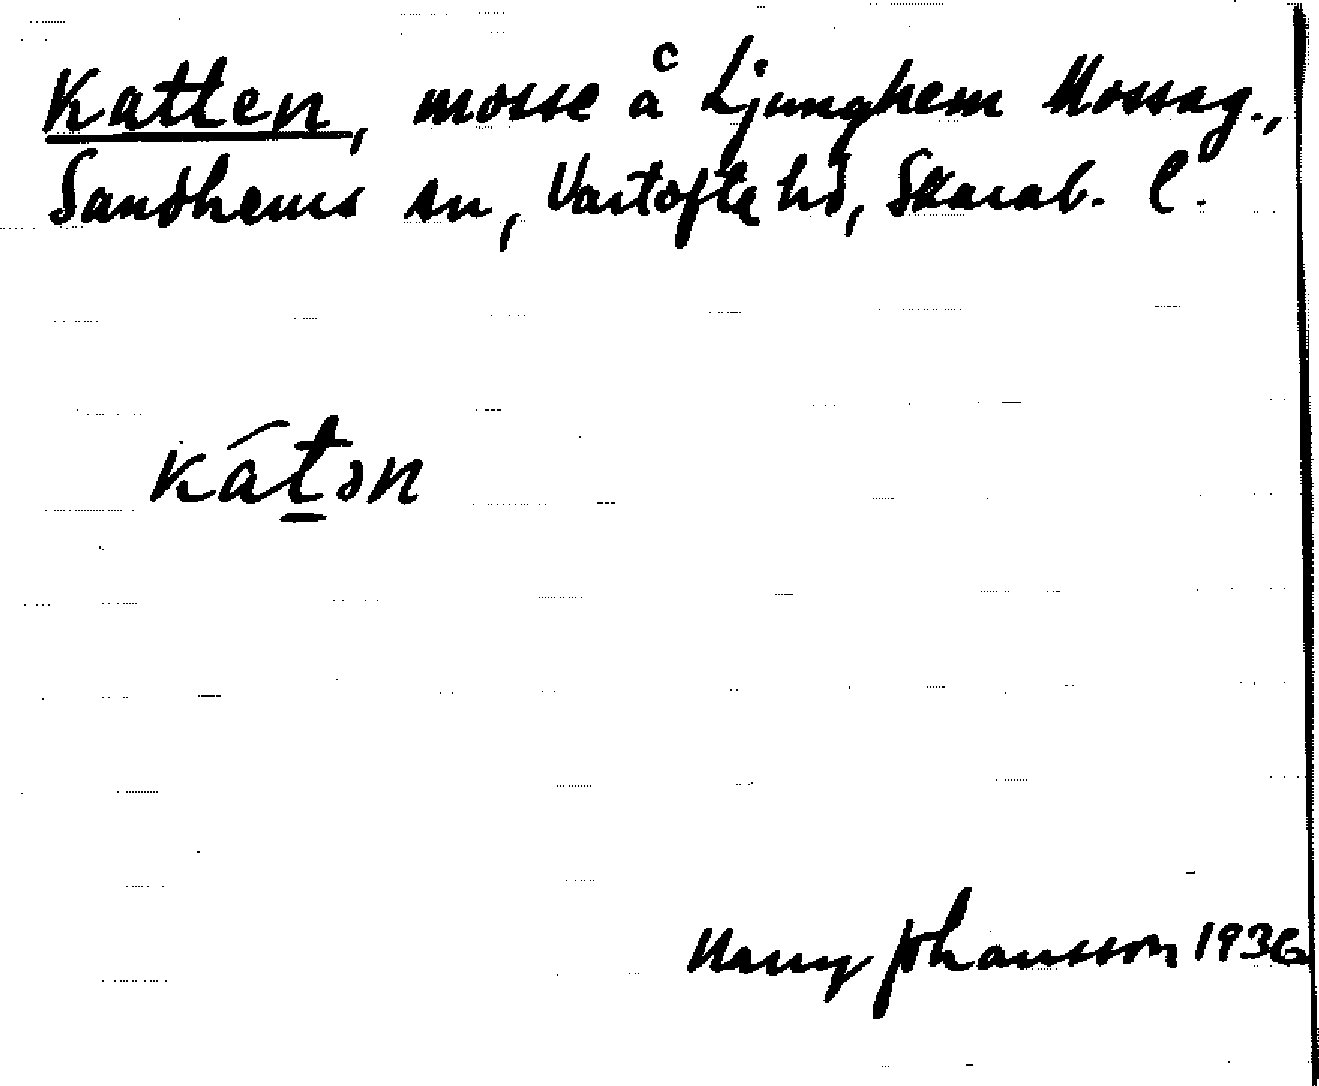 Katten, mosse å Ljunghem Mossag.,
Sandhems sn, Vartofta hd, Skarab. l.
kát̠ən
Harry Johansson 1936